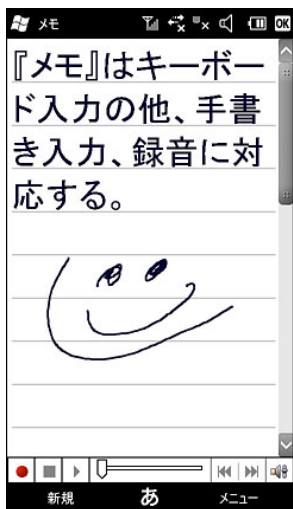 メモ
OK
『メモ』はキーボー
ド入力の他、手書
き入力、録音に対
応する。
新規 あ メニュー